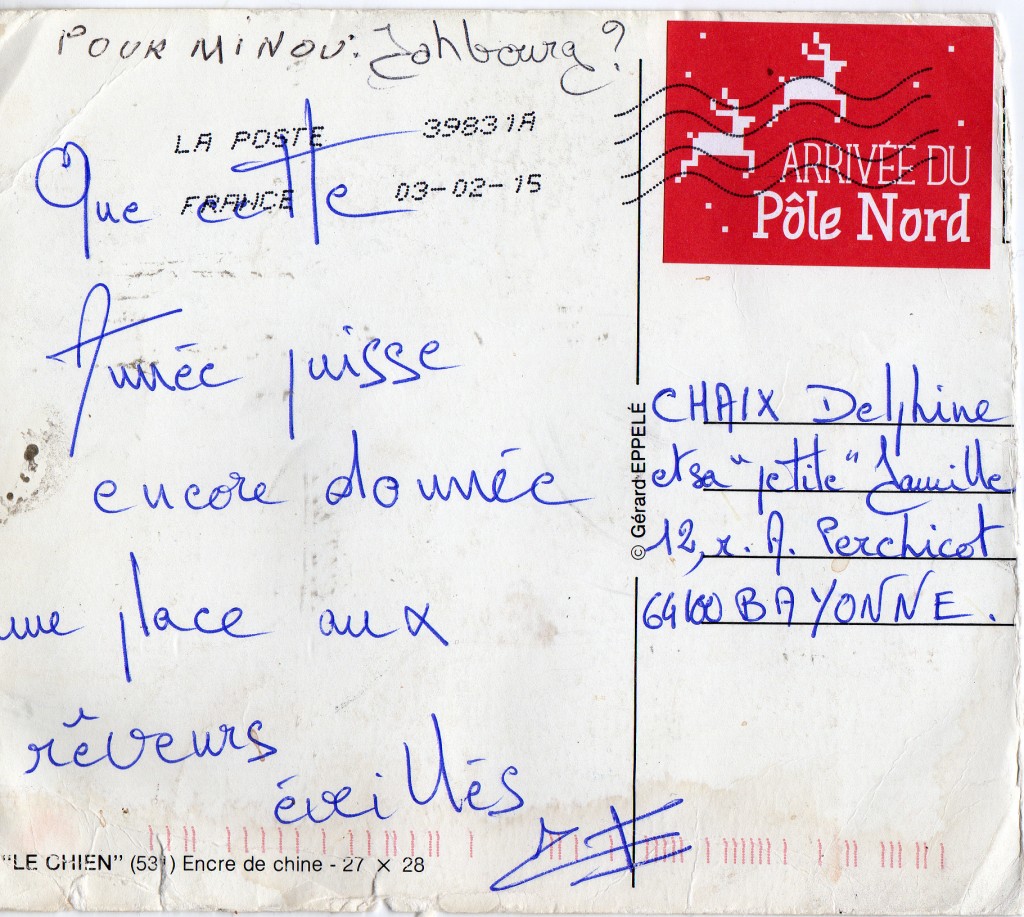 POUR MINOU: Jahbourg ?
LA POSTE 39831A
FRANCE 03-02-15
Que cette
Année puisse
encore donnée
une place aux
rêveurs
éveillés
"LE CHIEN" (53 ) Encre de chine - 27 × 28
© Gérard EPPELÉ
ARRIVÉE DU
Pôle Nord
CHAIX Delphine
et sa "petite" famille
12, r. A. Perchicot
64100 BAYONNE.